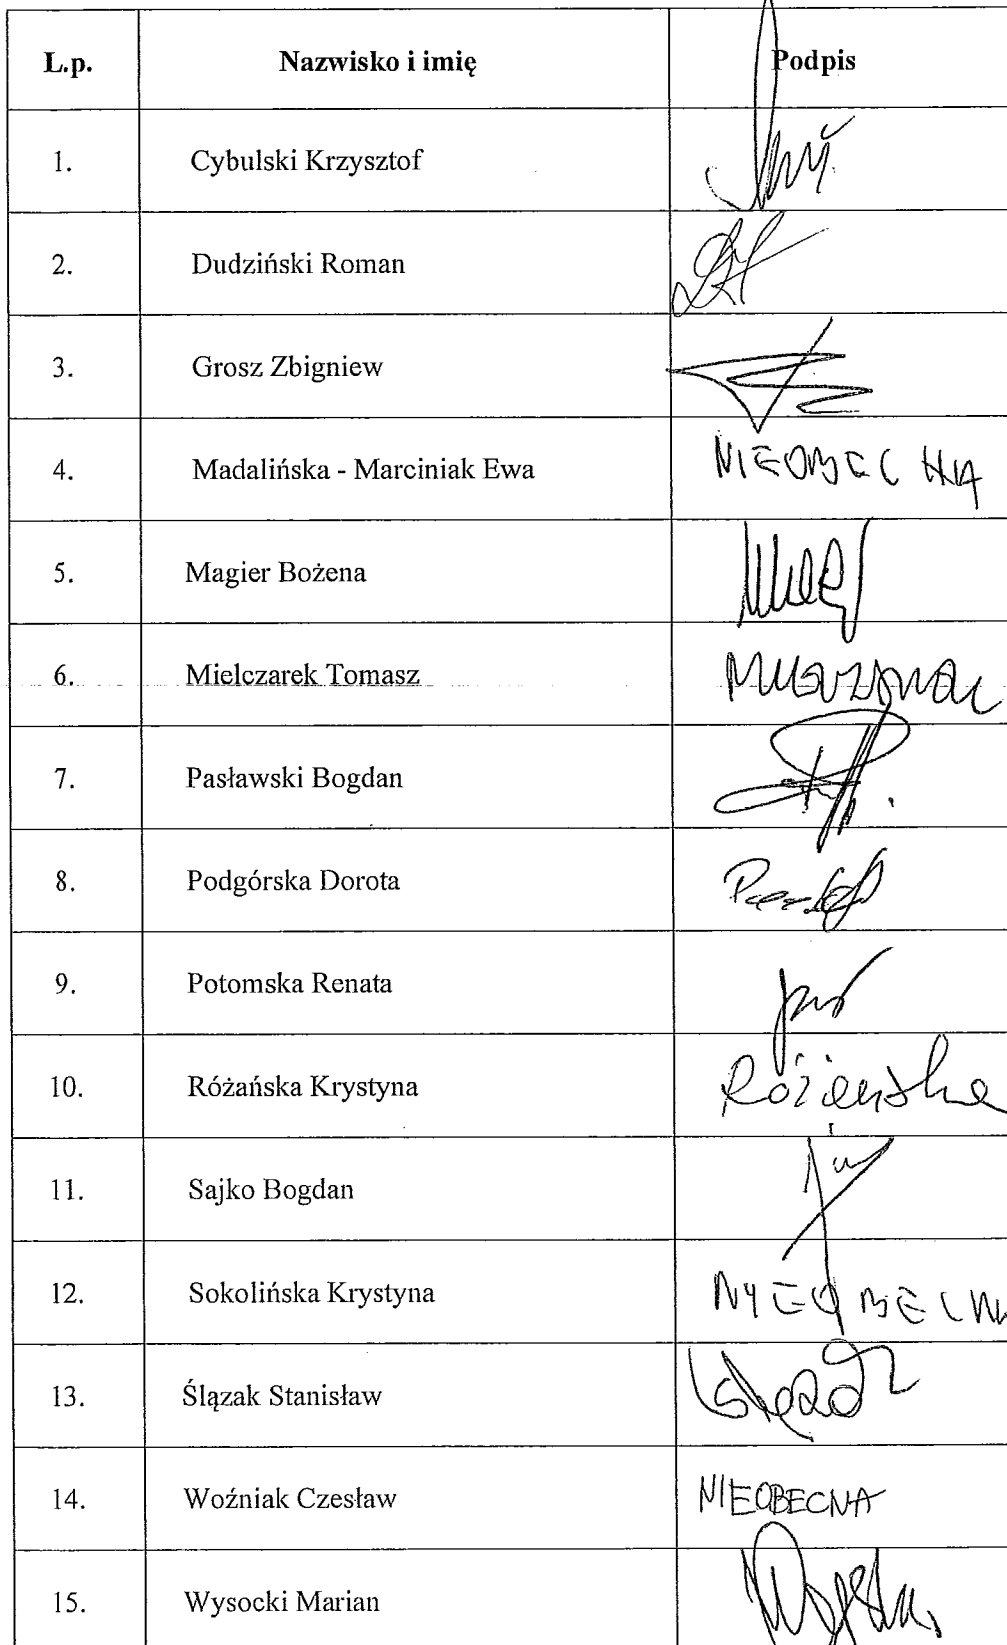 L.p. Nazwisko i imię Podpis
1. Cybulski Krzysztof
2. Dudziński Roman
3. Grosz Zbigniew
4. Madalińska - Marciniak Ewa NIEOBECNA
5. Magier Bożena
6. Mielczarek Tomasz
7. Pasławski Bogdan
8. Podgórska Dorota
9. Potomska Renata
10. Różańska Krystyna Różańska
11. Sajko Bogdan
12. Sokolińska Krystyna
13. Ślązak Stanisław
14. Woźniak Czesław NIEOBECNA
15. Wysocki Marian